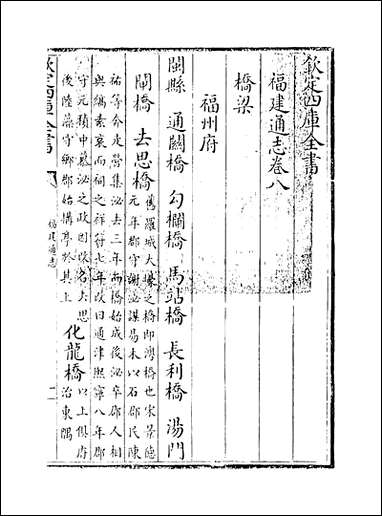 欽定四庫全書
福建通志卷八
橋梁
福州府
閩縣 通闗橋 勾欄橋 馬站橋 長利橋 湯門
閘橋 去思橋 舊羅城大壕之橋即灣橋也宋景德
元年郡守謝泌謀易木以石郡民陳
祐等分走營集泌去三年而橋始成後泌卒郡人相
與縞素哀而祠之祥符七年改曰通津熙寧八年郡
守元積中慕泌之政因改名去思
後陸藻守鄉郡始搆亭於其上 化龍橋 以上俱府
治東隅
欽定四庫全書
福建通志